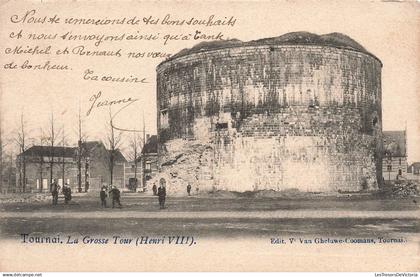 Nous te remercions de tes bons souhaits
et nous envoyons ainsi qu'à tante
Michel et Bernaut nos vœux
de bonheur.
Ta cousine
Jeanne
Tournai. La Grosse Tour (Henri VIII).
Edit. Vᵉ Van Gheluwe-Coomans, Tournai.